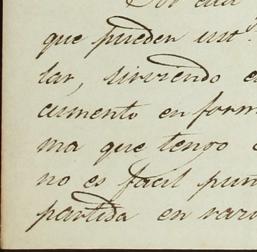 que pueden
dar, sirviendo
cumento en form
ma que tengo
no es facil pun
partida en vari